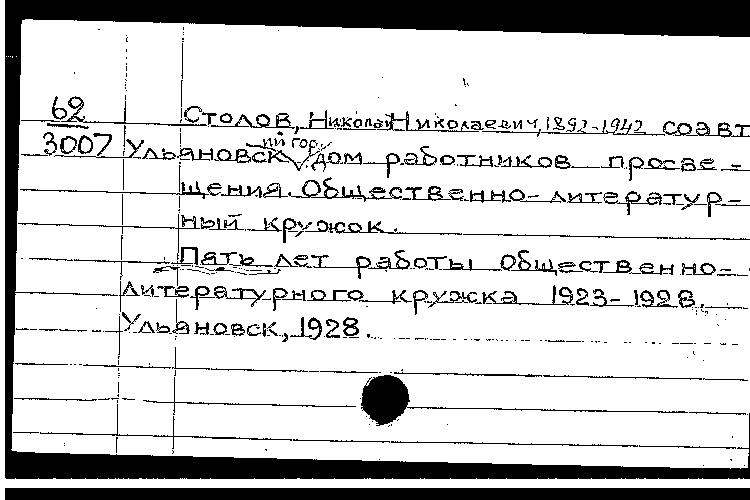 62
3007
Столов, Николай Николаевич, 1892-1942 соавт
Ульяновский гор. дом работников просве-
щения. Общественно-литератур-
ный кружок.
Пять лет работы общественно-
литературного кружка 1923-1928.
Ульяновск, 1928.